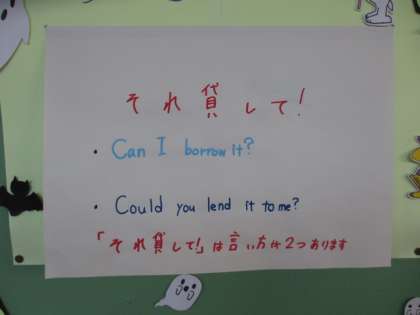 それ貸して!
・Can I borrow it?
・Could you lend it to me?
「それ貸して!」は言い方は2つあります